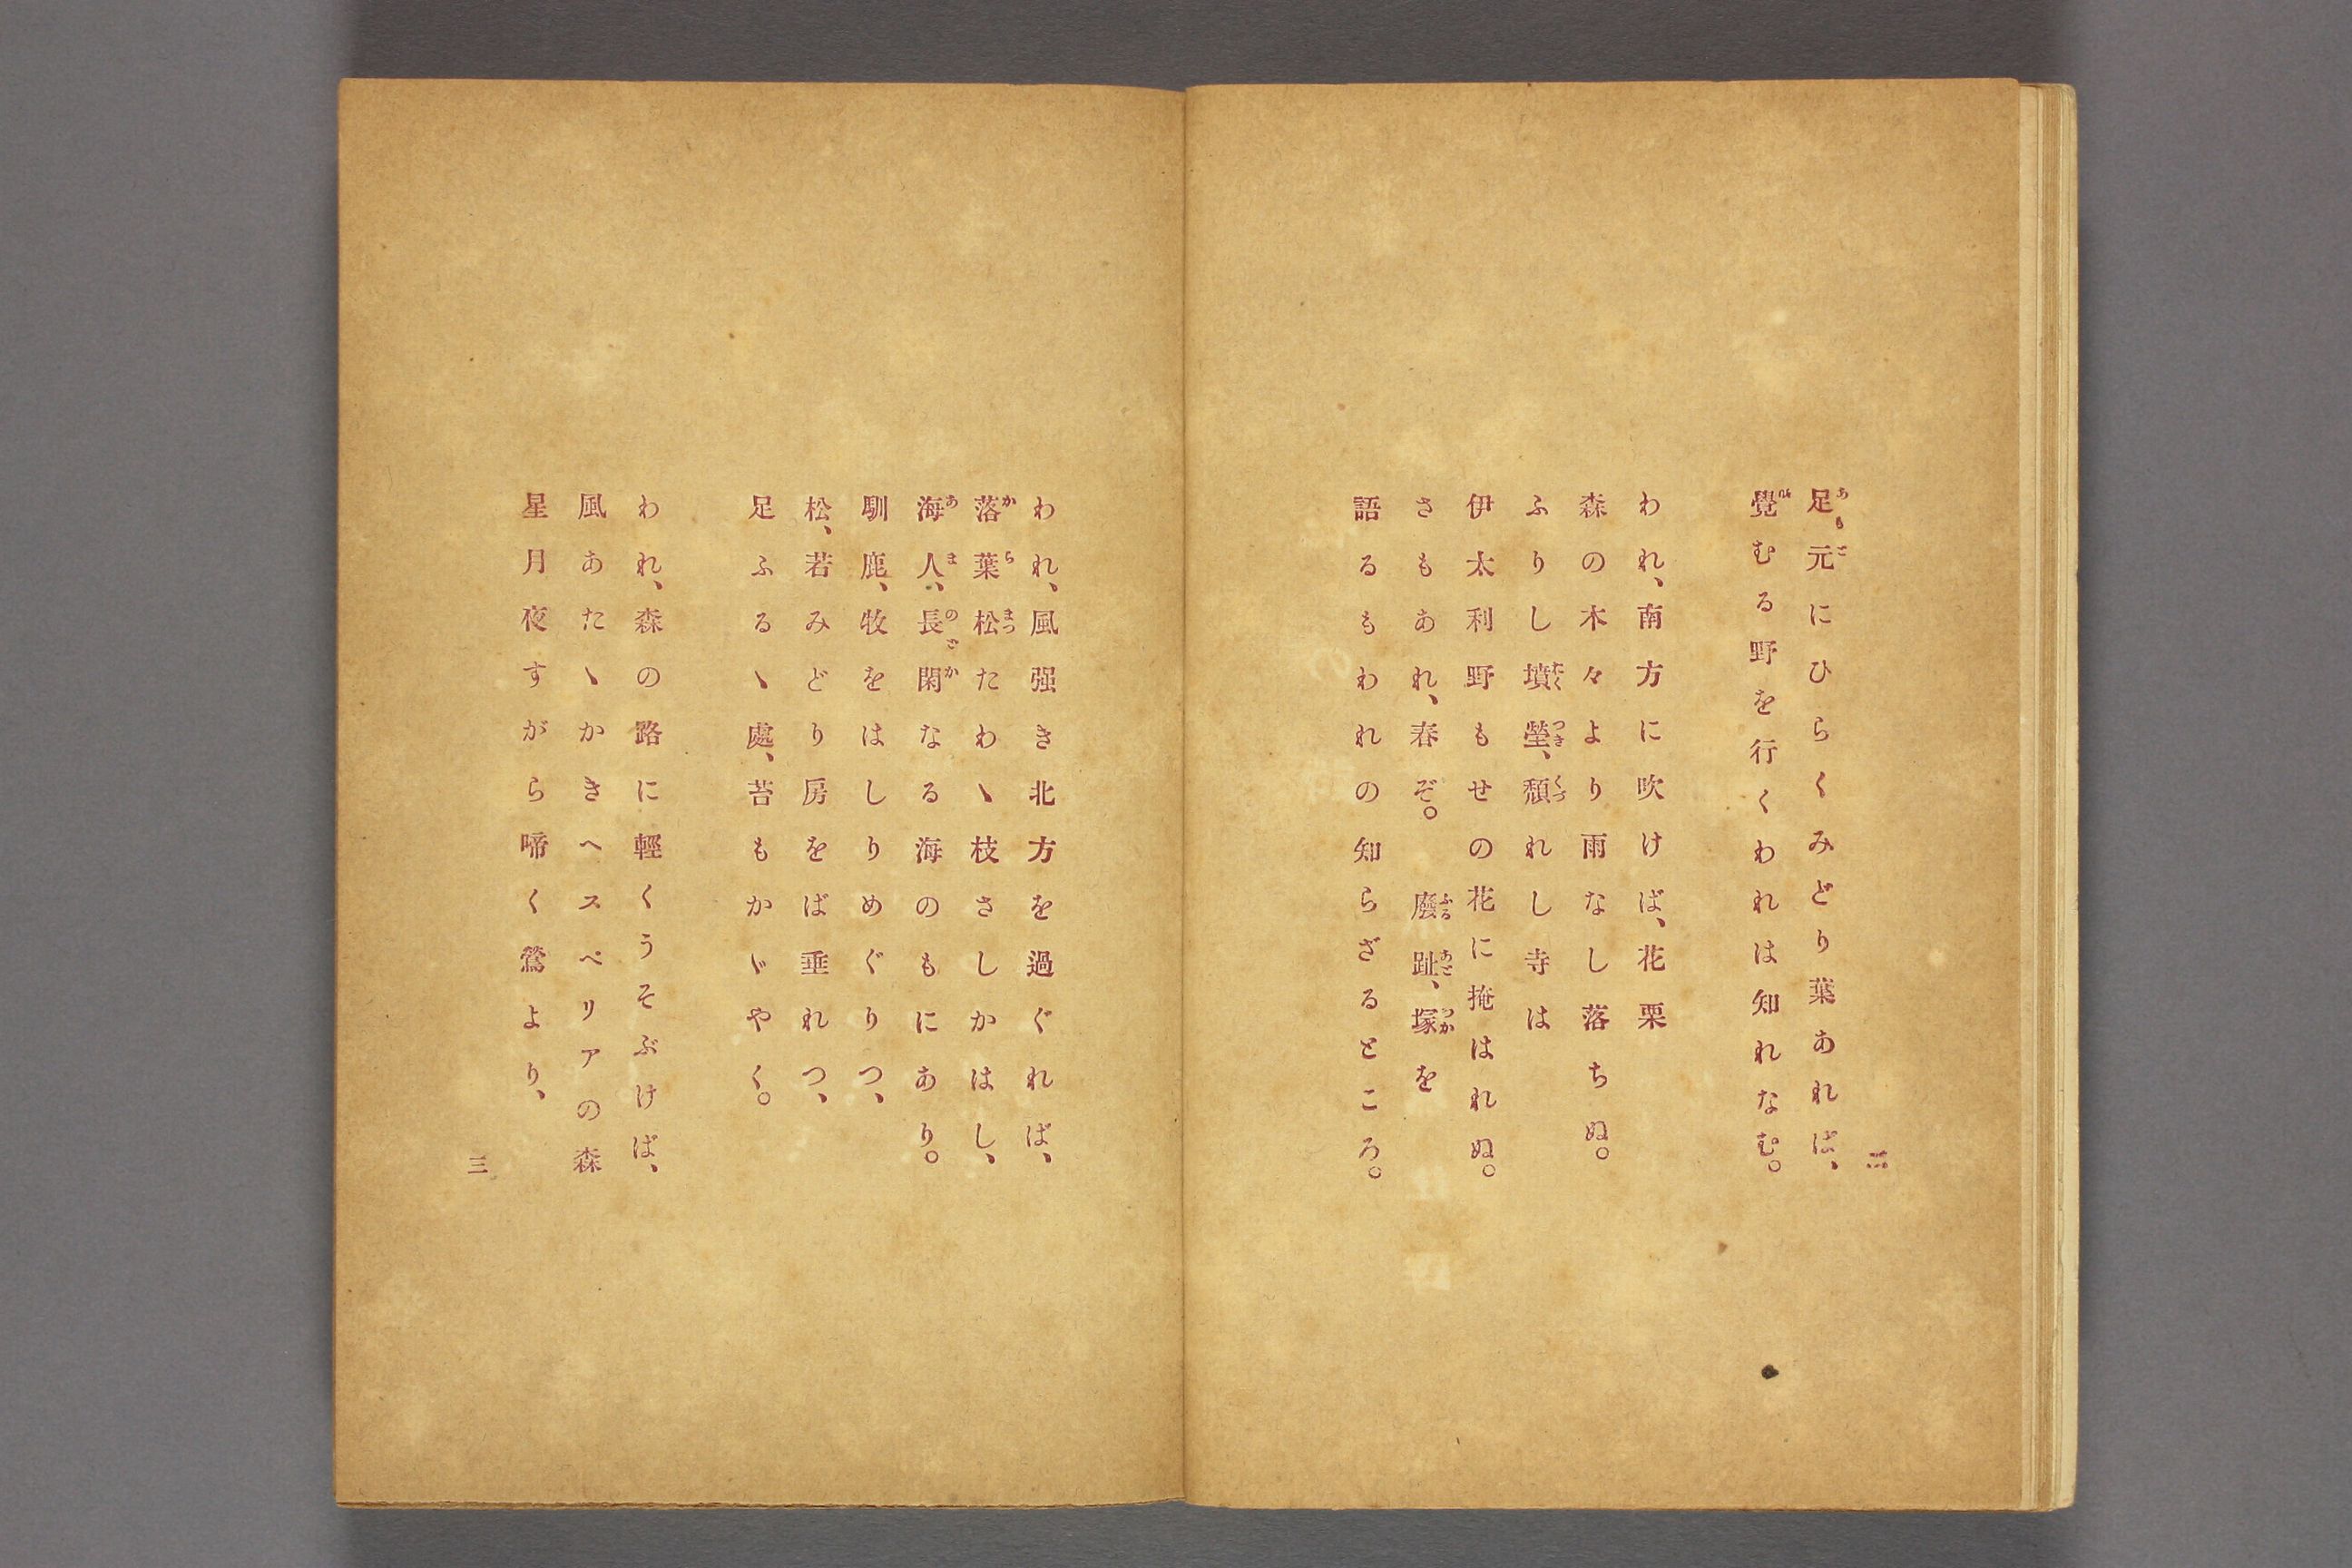 二
足元にひらくみどり葉あれば、
覺むる野を行くわれは知れなむ。
われ、南方に吹けば、花栗
森の木々より雨なし落ちぬ。
ふりし墳塋、頽れし寺は
伊太利野もせの花に掩はれぬ。
さもあれ、春ぞ。廢趾、塚を
語るもわれの知らざるところ。
われ、風强き北方を過ぐれば、
落葉松たわゝ枝さしかはし、
海人、長閑なる海のもにあり。
馴鹿、牧をはしりめぐりつ、
松、若みどり房をば垂れつ、
足ふるゝ處、苔もかゞやく。
われ、森の路に輕くうそぶけば、
風あたゝかきヘスペリアの森
星月夜すがら啼く鶯より、
三